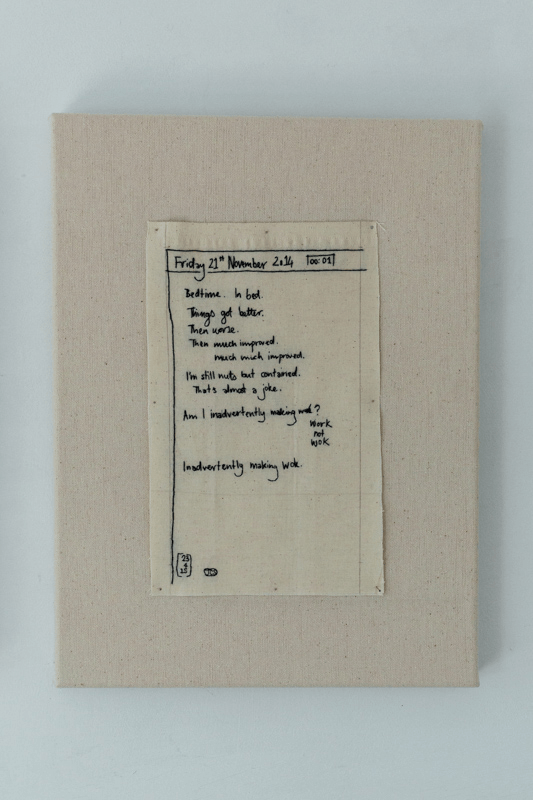 Friday 21st November 2014 00:01
Bedtime. In bed.
Things got better.
Then worse.
Then much improved.
much much improved.
I'm still nuts but contained.
That's almost a joke.
Am I inadvertently making wok?
work
not
wok
Inadvertently making wok.
23
6
15